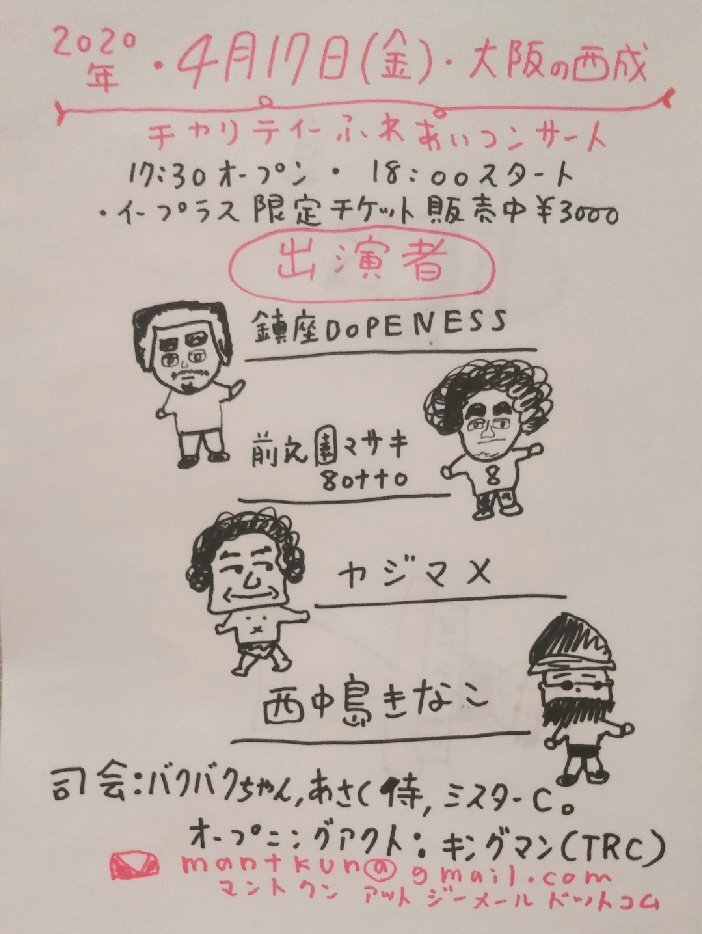 2020年・4月17日(金)・大阪の西成
チャリティーふれあいコンサート
17:30オープン・18:00スタート
・イープラス限定チケット販売中¥3000
出演者
鎮座DOPENESS
前之園マサキ
8otto
カジマメ
8
西中島きなこ
司会:バクバクちゃん,あさく侍,ミスターC。
オープニングアクト:キングマン(TRC)
mantkun@gmail.com
マントクン アット ジーメール ドットコム